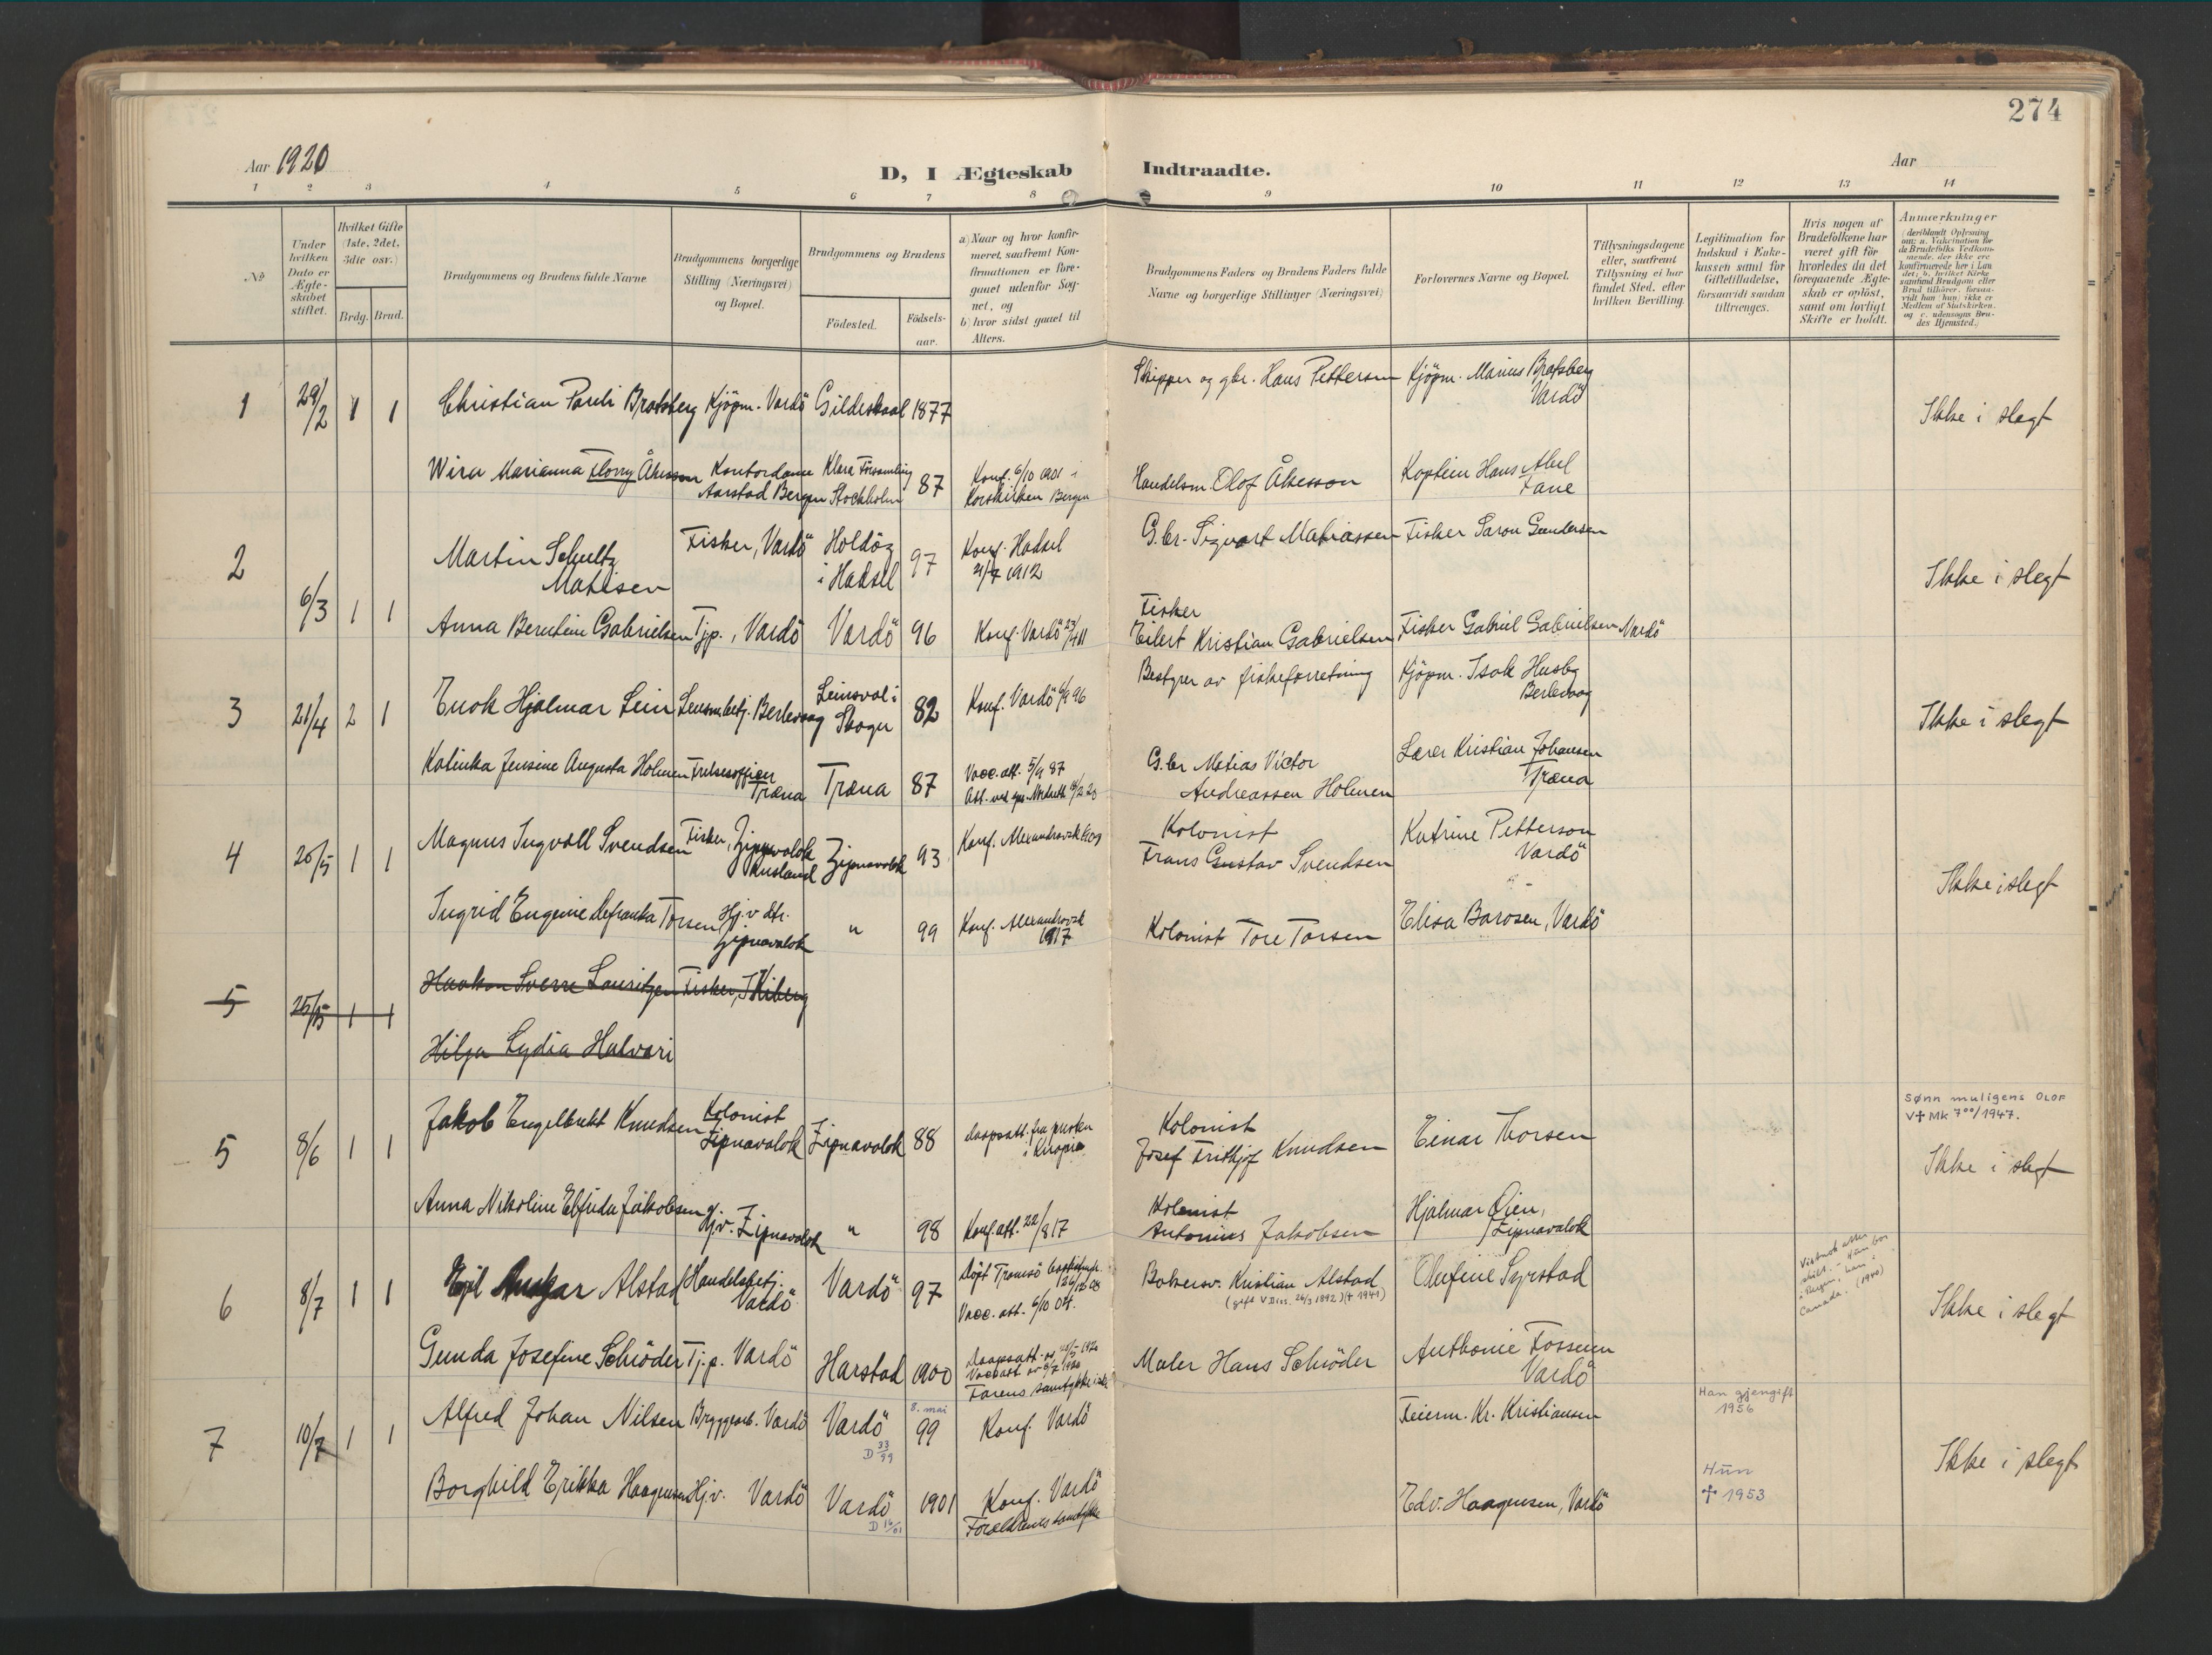 274
Aar 1920
D, I Ægteskab Indtraadte.
Aar
1 2 3 4 5 6 7 8 9 10 11 12 13 14
No
Under hvilken Dato er Ægteskabet stiftet.
Hvilket Gifte (1ste, 2det, 3die osv.)
Brdg. Brud.
Brudgommens og Brudens fulde Navne
Brudgommens borgerlige Stilling (Næringsvei) og Bopæl.
Brudgommens og Brudens
Födested.
Födselsaar.
a) Naar og hvor konfirmeret, saafremt Konfirmationen er foregaaet udenfor Sognet, og
b) hvor sidst gaaet til Alters.
Brudgommens Faders og Brudens Faders fulde Navne og borgerlige Stillinger (Næringsvei)
Forlovernes Navne og Bopæl.
Tillysningsdagene eller, saafremt Tillysning ei har fundet Sted, efter hvilken Bevilling.
Legitimation for Indskud i Enkekassen samt for Giftetilladelse, forsaavidt saadan tiltrænges.
Hvis nogen af Brudefolkene har været gift för hvorledes da det foregaaende Ægteskab er oplöst, samt om lovligt Skifte er holdt.
Anmærkninger (deriblandt Oplysning om: a. Vakcination for de Brudefolks Vedkommende, der ikke ere konfirmerede her i Landet; b. hvilket Kirkesamfund Brudgom eller Brud tilhörer, forsaavidt han (hun) ikke er Medlem af Statskirken, og c. udensogns Brudes Hjemsted.)
1 29/2 1 1 Christian Pareli Bratsberg Kjöpm. Vardö Gildeskaal 1877 Skipper og gbr. Hans Petterson Kjöpm. Marius Bratsberg Vardö Ikke i slegt
Wira Marianna Florry Åkesson Kontordame Aarstad Bergen Klara Församling Stockholm 87 Konf. 6/10 1901 i Korskirken Bergen Handelsm. Olof Åkesson Kaptein Hans Abel Fane
2 6/3 1 1 Martin Schultz Matisen Fisker, Vardö Holdöz i Hadsel 97 Konf. Hadsel 21/7 1912 G.br. Sigvart Matiassen Fisker Saron Gundersen Ikke i slegt
Anna Berntine Gabrielsen Tjp., Vardö Vardö 96 Konf. Vardö 23/4 11 Fisker Eilert Kristian Gabrielsen Fisker Gabriel Gabrielsen Vardö
3 21/4 2 1 Enok Hjalmar Lein Lensm.betj. Berlevaag Leinsval i Skoger 82 Konf. Vardö 6/9 96 Bestyrer av fiskeforretning Kjöpm. Isak Husby Berlevaag Ikke i slegt
Kalinka Jensine Augusta Holmen Frelsesoffiser Træna Træna 87 Vacc. att. 5/9 87 G.br Matias Victor Andreassen Holmen Lærer Kristian Johansen Træna
4 20/5 1 1 Magnus Ingvall Svendsen Fisker, Zipnavolok Rusland Zipnavolok 93 Konf. Alexandrovsk 1909 Kolonist Frans Gustav Svendsen Katrine Petterson Vardö Ikke i slegt
Ingrid Eugenie Torsen Hj.v. dtr. Zipnavolok " 99 Konf. Alexandrovsk 1917 Kolonist Tore Torsen Elisa Barosen, Vardö
5 25/5 1 1 Haakon Sverre Lauritzen Fisker, Kiberg
Hilja Lydia Halvari
5 8/6 1 1 Jakob Engelbrekt Knudsen Kolonist Zipnavolok Zipnavolok 88 daapsatt. fra presten Kolonist Josef Frithjof Knudsen Einar Thorsen Sønn muligens OLOF V✝ Mk 7⁰⁰/1947. Ikke i slegt
Anna Nikoline Elfrida Jakobsen Hj.v. Zipnavolok " 98 Konf.att. 22/8 17 Kolonist Antonius Jakobsen Hjalmar Øien, Zipnavolok
6 8/7 1 1 Egil Ansgar Alstad Handelsbetj. Vardö Vardö 97 Vacc. att. 6/10 Bokersv. Kristian Alstad (gift V Diss. 26/3 1892) (✝ 1941) Olufine Syrstad Canada. (1940) Ikke i slegt
Gunda Josefine Schröder Tj.p. Vardö Harstad 1900 Daapsatt. av 25/5 1920 Vaccatt av 5/7 1920 Farens samtykke Maler Hans Schröder Anthonie Fossum Vardö
7 10/7 1 1 Alfred Johan Nilsen Bryggearb. Vardö Vardö D 33/99 8. mai 99 Konf. Vardö Feierm. Kr. Kristiansen Han gjengift 1956 Ikke i slegt
Borghild Erikka Haagensen Hj.v. Vardö Vardö D 16/01 1901 Konf. Vardö Forældrenes samtykke Edv. Haagensen, Vardö Hun ✝ 1953